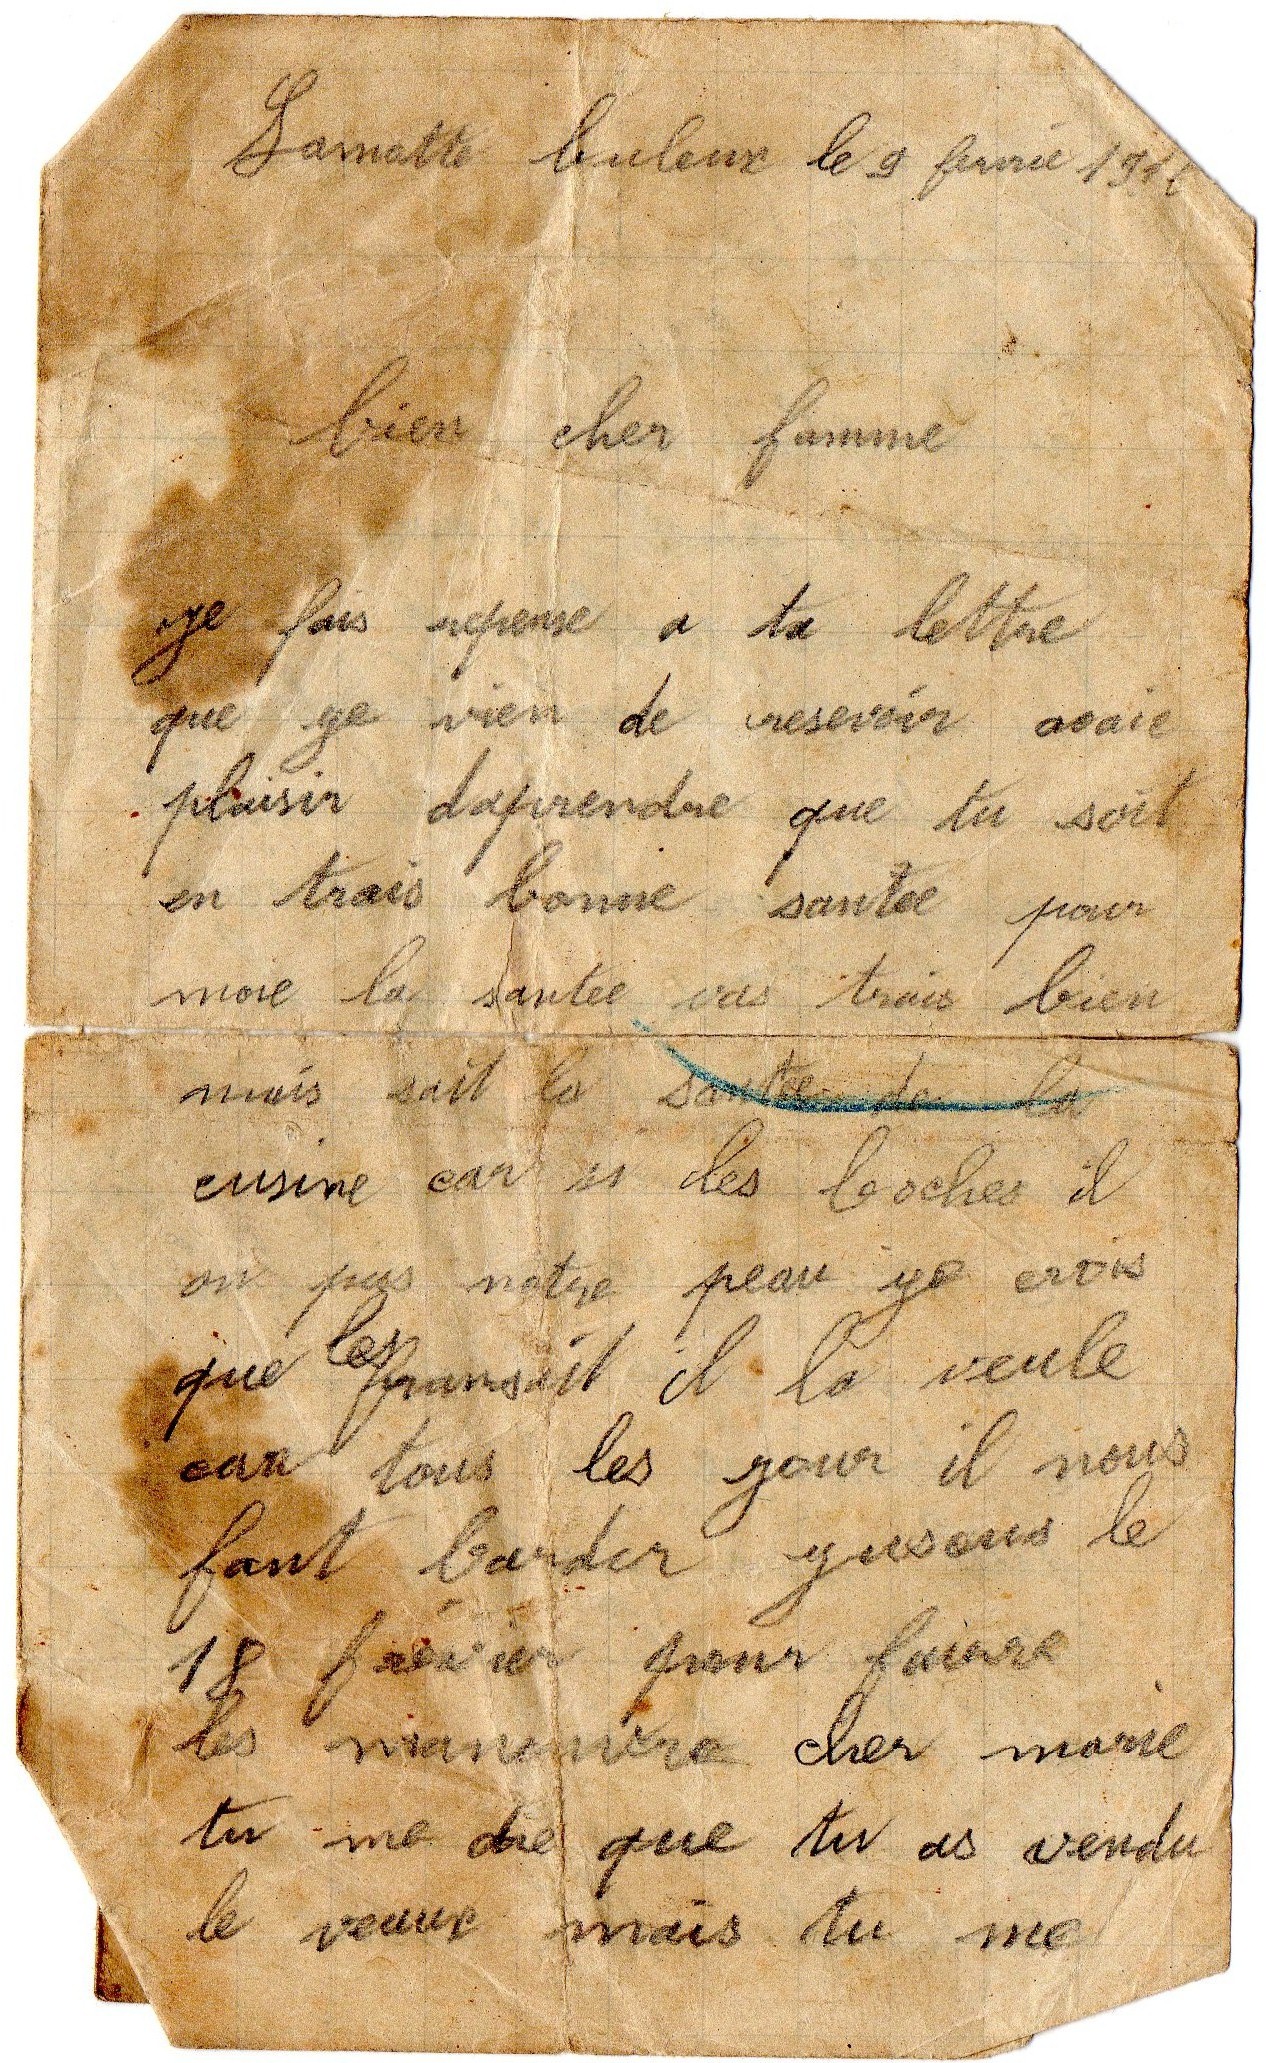 Lamotte buleux le 9 fevrié 191
bien cher famme
ye fais reponse a ta lettre
que ye vien de resevoir avaic
plaisir daprendre que tu soit
en trais bonne santée pour
moie la santée vas trais bien
mais sait la santée de la
cusine car si les boches il
on pas notre peau ye crois
que les fransait il la veule
car tous les your il nous
fant barder yusous le
18 frévier pour faiere
les manouvre cher marie
tu me die que tu as vendu
le veaux mais tu me